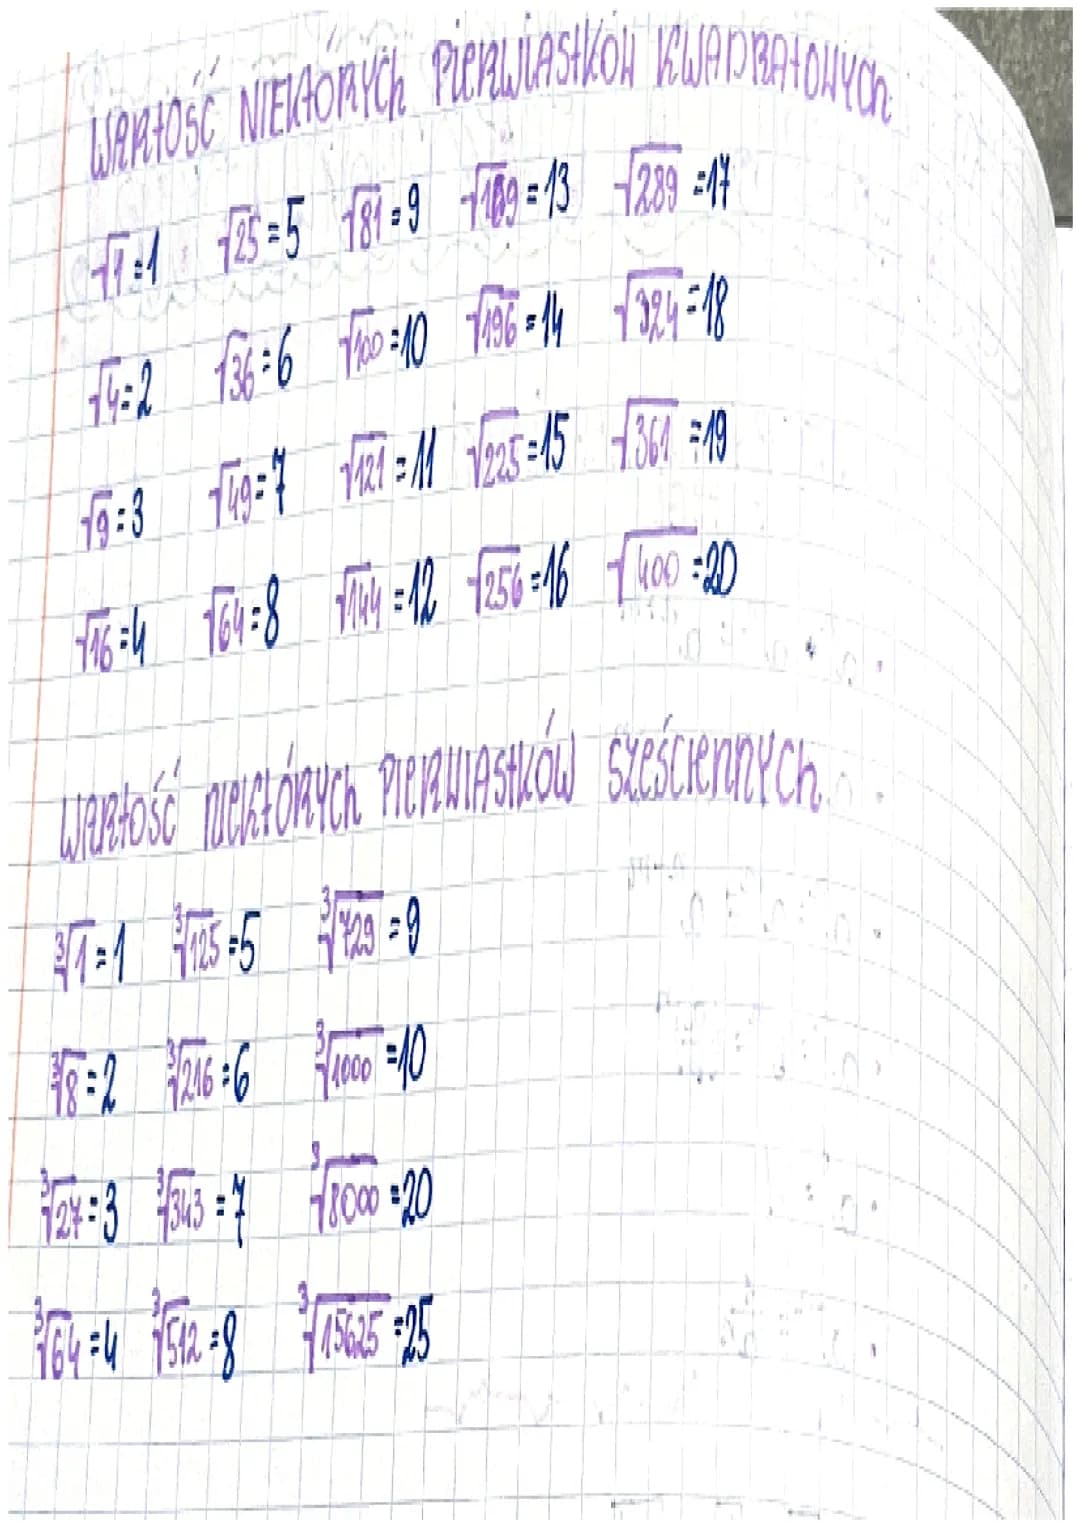 WARTOŚĆ NIEKTÓRYCH PIERWIASTKÓW KWADRATOWYCH
√1=1 √25=5 √81=9 √169=13 √289=17
√4=2 √36=6 √100=10 √196=14 √324=18
√9=3 √49=7 √121=11 √225=15 √361=19
√16=4 √64=8 √144=12 √256=16 √400=20
WARTOŚĆ NIEKTÓRYCH PIERWIASTKÓW SZEŚCIENNYCH
∛1=1 ∛125=5 ∛729=9
∛8=2 ∛216=6 ∛1000=10
∛27=3 ∛343=7 ∛8000=20
∛64=4 ∛512=8 ∛15625=25